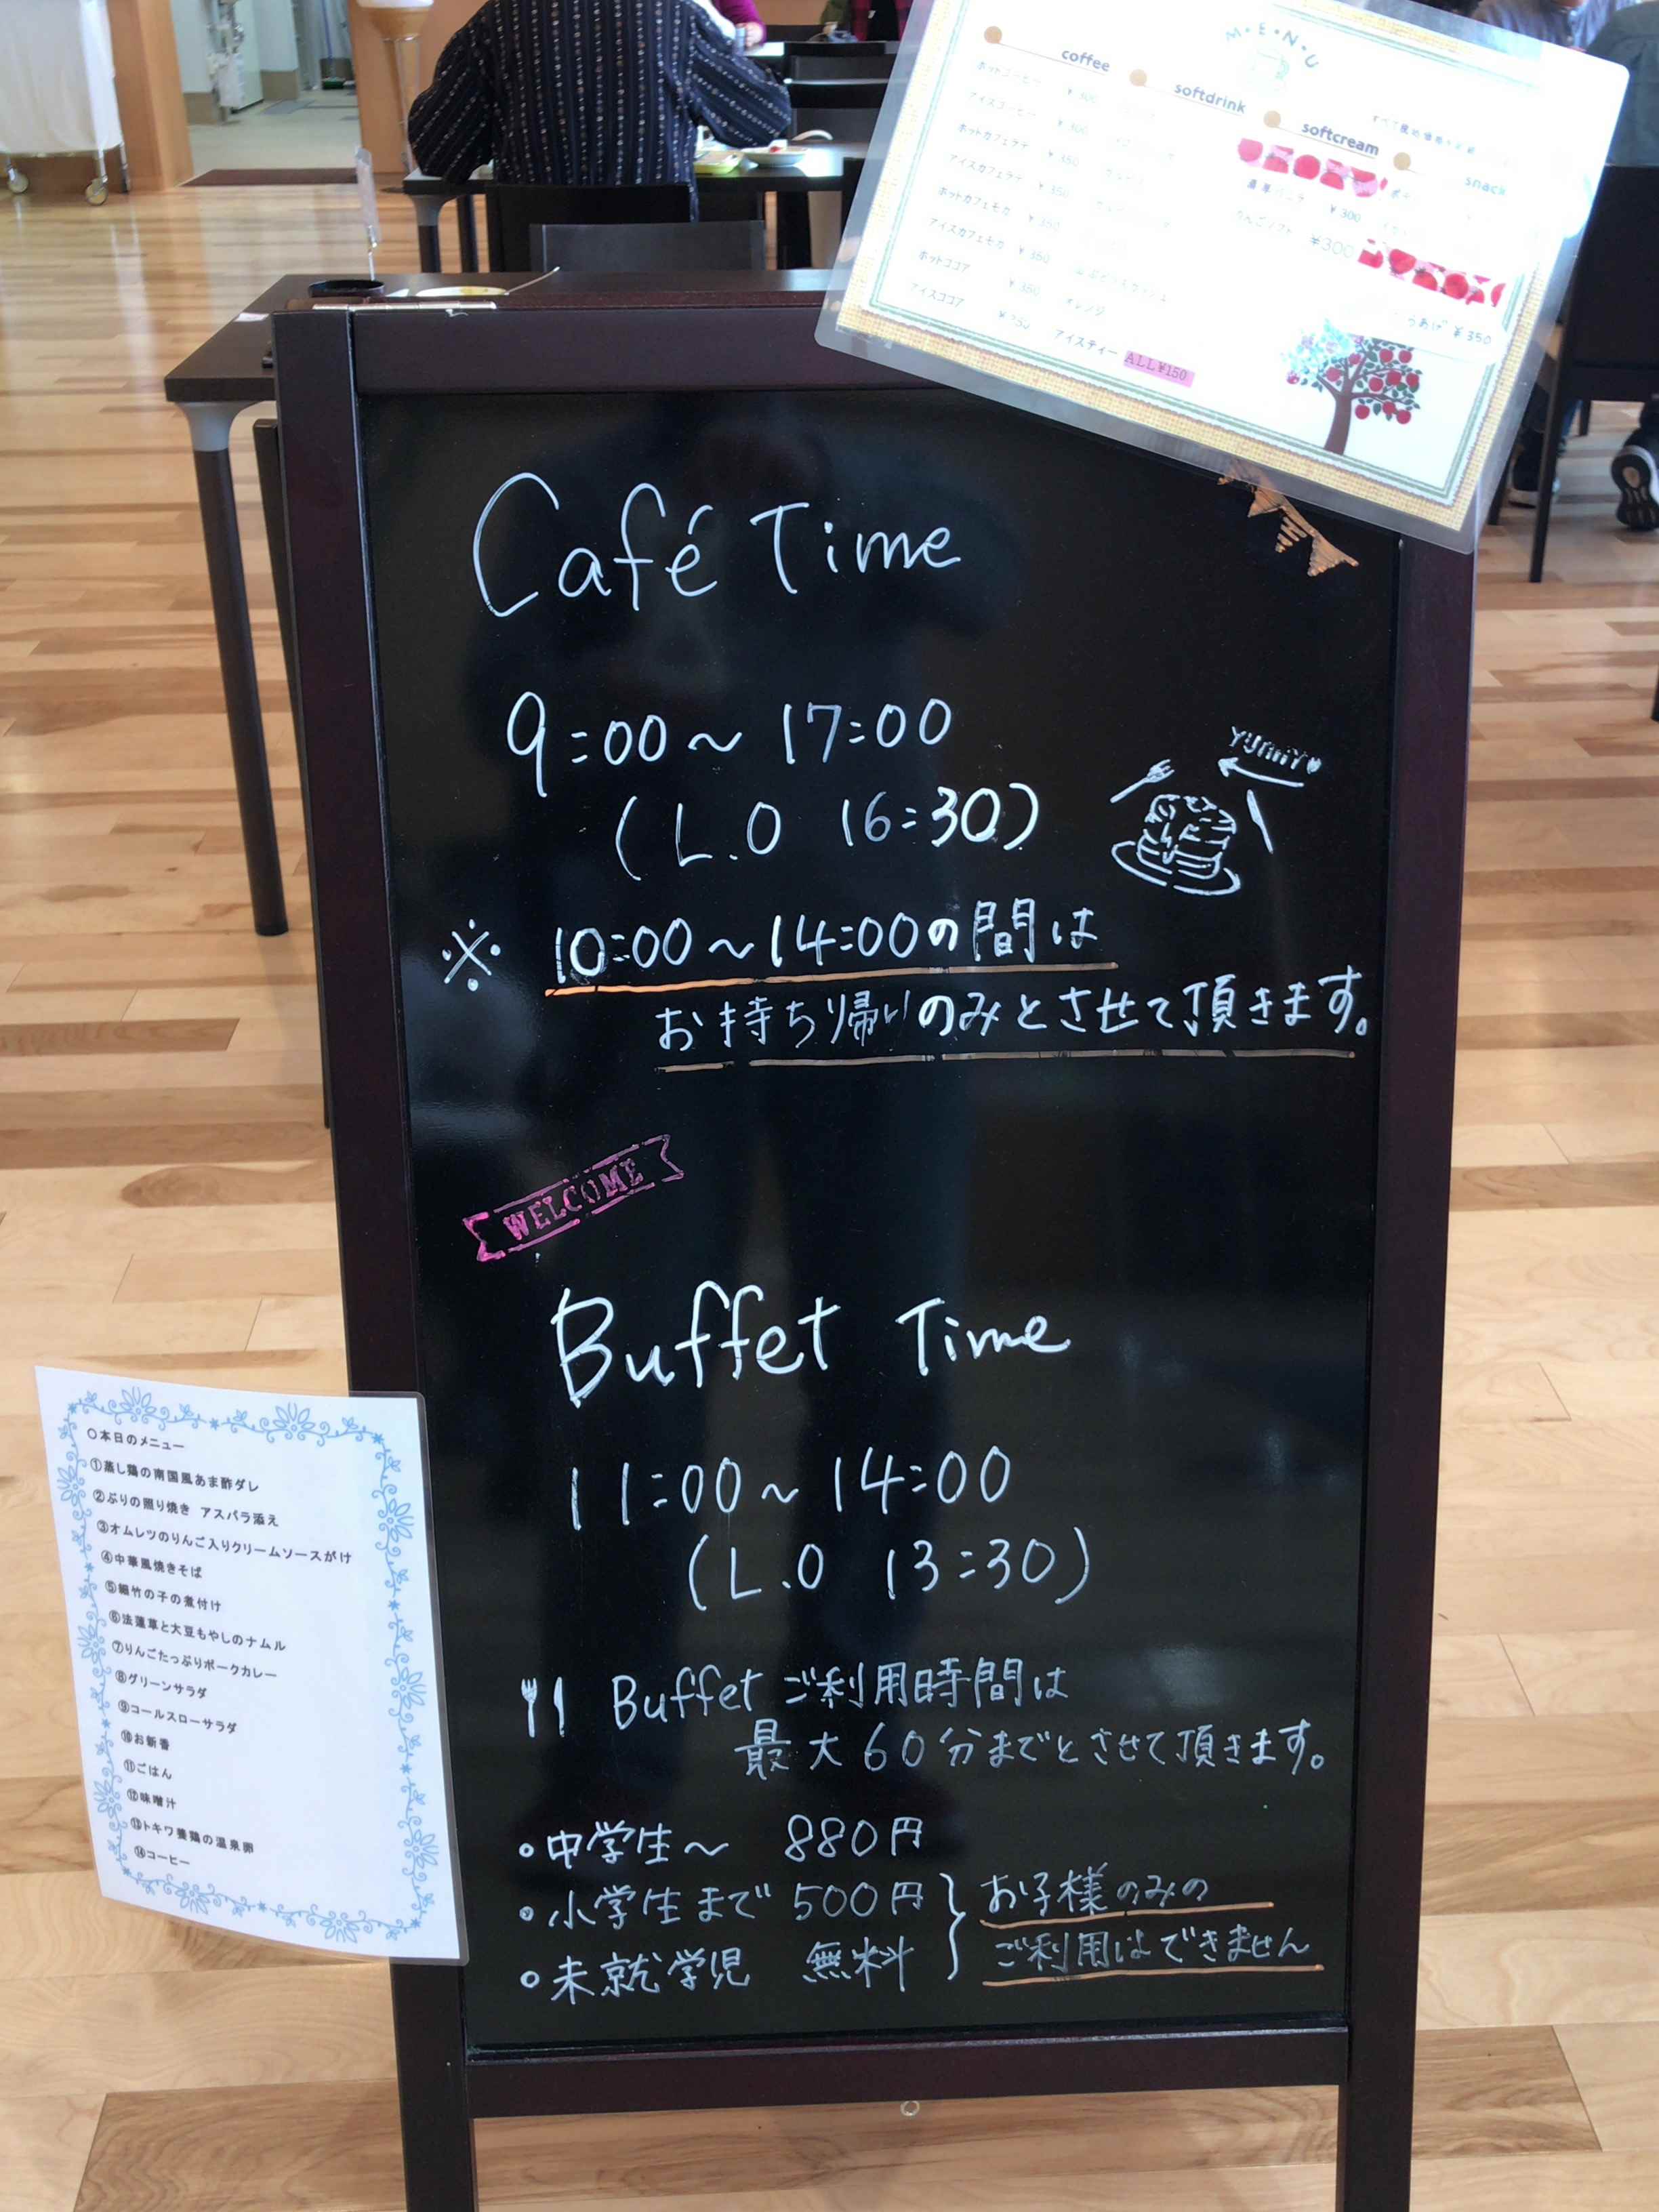 M・E・N・U
coffee
softdrink
softcream
snack
ホットコーヒー ¥300
アイスコーヒー ¥300
ホットカフェラテ ¥350
アイスカフェラテ ¥350
ホットカフェモカ ¥350
アイスカフェモカ ¥350
ホットココア ¥350
アイスココア ¥350
オレンジ
アイスティー
ALL¥150
¥300
りんごソフト ¥300
¥350
Café Time
9:00～17:00
(L.O 16:30)
YUMMY♥
※ 10:00～14:00の間は
お持ち帰りのみとさせて頂きます。
WELCOME
Buffet Time
11:00～14:00
(L.O 13:30)
Buffet ご利用時間は
最大60分までとさせて頂きます。
・中学生～ 880円
・小学生まで 500円
・未就学児 無料
お子様のみの
ご利用はできません
○本日のメニュー
①蒸し鶏の南国風あま酢ダレ
②ぶりの照り焼き アスパラ添え
③オムレツのりんご入りクリームソースがけ
④中華風焼きそば
⑤細竹の子の煮付け
⑥法蓮草と大豆もやしのナムル
⑦りんごたっぷりポークカレー
⑧グリーンサラダ
⑨コールスローサラダ
⑩お新香
⑪ごはん
⑫味噌汁
⑬トキワ養鶏の温泉卵
⑭コーヒー